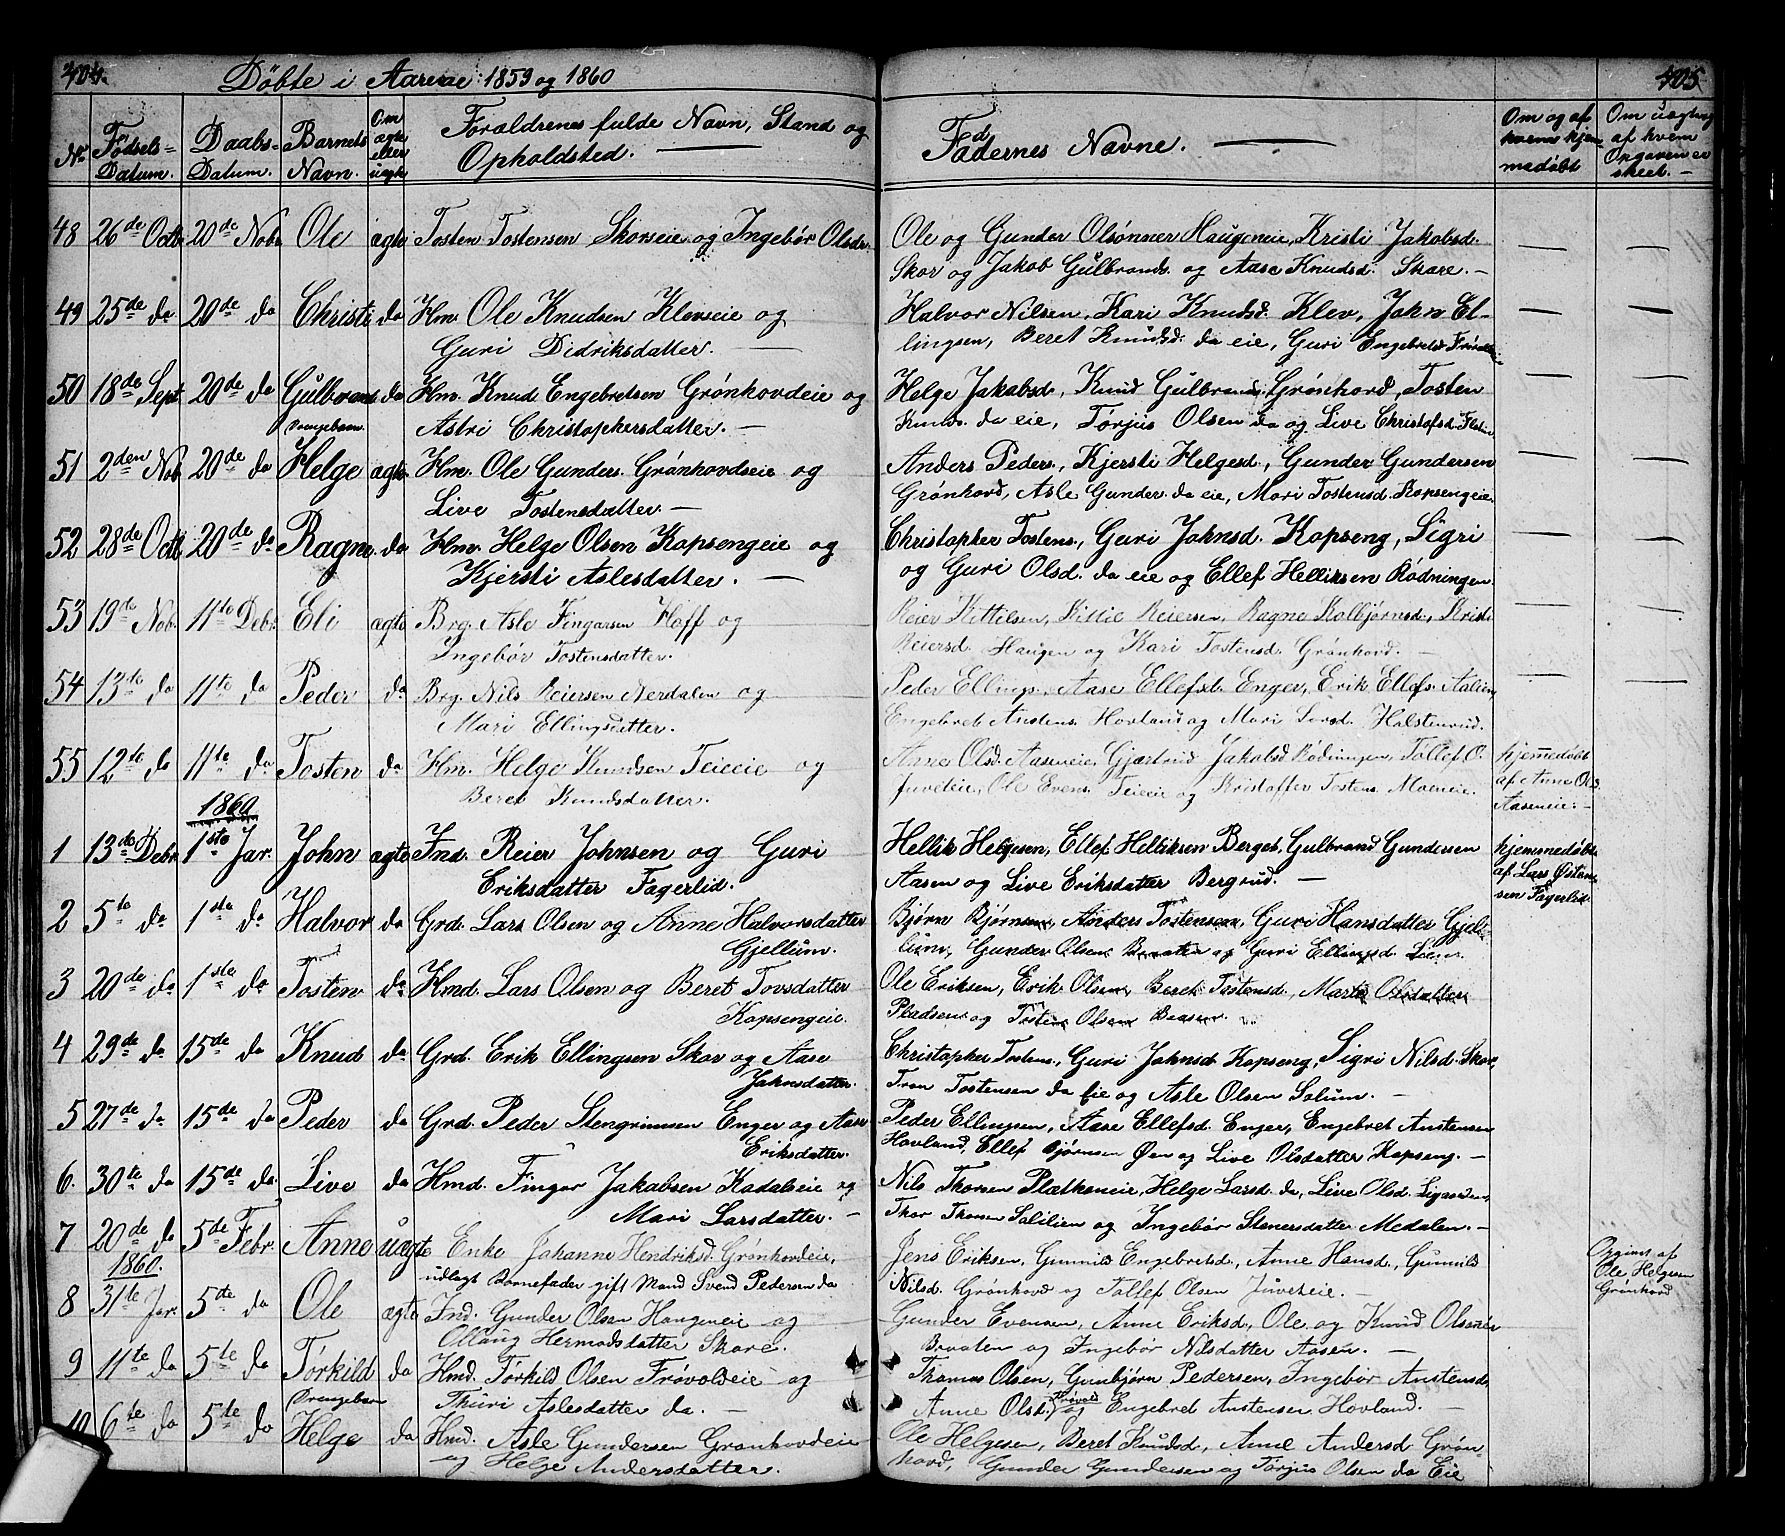 404.
Döbte i Aarene 1859 og 1860
405
No
Födsels=Datum.
Daabs=Datum.
Barnets Navn.
Om ægte eller uægte
Forældrenes fulde Navn, Stand og Opholdsted.
Faddernes Navne.
Om og af hvem hjemmedöbt
Om uægte af hvem Opgaven er skeet.
48 26de Octb. 20de Nobr. Ole ægte Tosten Tostensen Skorseie og Ingebör Olsdr.
Ole og Gunder Olsönner Haugeneie, Kristi Jakobsd.
Skor og Jakob Gulbrands. og Aase Knudsd. Skare.
49 25de do 20de do Christi do Hm. Ole Knudsen Klevseie og
Guri Didriksdatter.
Halvor Nilsen, Kari Knudsd. Klev, John El-
lingsen, Beret Knudsd. da eie, Guri Engebretsd.
50 18de Sept. 20de do Gulbrand do Hm. Knud Engebretsen Grönhovdeie og
Drengebarn. Astri Christophersdatter.
Helge Jakobsd, Knud Gulbrands, Grönhovd, Tosten
Knuds. da eie, Törjus Olsen da og Live Christofsd.
51 2den Nob. 20de do Helge ægte Hm. Ole Gunders. Grönhovdseie og
Live Tostensdatter.
Anders Peders., Kjersti Helgesd., Gunder Gundersen
Grönhovd, Asle Gunder. da eie, Mari Tostensd. Kopsengeie.
52 28de Octb. 20de do Ragne do Hm. Helge Olsen Kopsengeie og
Kjersti Aslesdatter.
Christopher Tostens., Guri Johnsd. Kopseng, Sigri
og Guri Olsd. da eie og Ellef Helliksen Rödningen.
53 19de Nob. 11te Debr. Eli ægte Brg. Asle Fingarsen Hoff og
Ingebör Tostensdatter.
Reier Kittilsen, Kittil Reiersen, Ragne Kolbjörnsd., Kristi
Reiersd. Haugen og Kari Tostensd. Grönhovd.
54 13de do 11te do Peder do Brg. Nils Reiersen Nerdalen og
Mari Ellingsdatter.
Peder Ellings., Aase Ellefsd. Enger, Erik Ellefs.
Engebret Anstens. Hovland og Mari Larsd. Halstenrud.
55 12te do 11te do Tosten do Hm. Helge Knudsen Teieeie og
Beret Knudsdatter.
Anne Olsd. Aaseneie, Gjertrud Jakobsd. Rödningen, Tollef O.
Juveteie, Ole Evens. Teieeie og Kristoffer Tostens. Moeneie.
hjemmedöbt
af Anne Olsd.
Aaseneie.
1860
1 13de Debr. 1ste Jar. John ægte Ind. Reier Johnsen og Guri
Eriksdatter Fagerlid.
Hellik Helgesen, Ellef Helliksen Berget, Gulbrand Gundersen
Aasen og Live Eriksdatter Bergrud.
hjemmedöbt
af Lars Östen-
sen Fagerlid.
2 5te do 1ste do Halvor do Grd. Lars Olsen og Anne Halvorsdatter
Gjellum.
Björn Björnsen, Anders Tostensen, Guri Hansdatter Gjel-
lum, Gunder Olsen Braaten og Guri Ellingsd.
3 20de do 1ste do Tosten do Hmd. Lars Olsen og Beret Tovsdatter
Kopsengeie.
Ole Eriksen, Erik Olsen, Beret Tostensd., Marte Olsdatter
Pladsen og Tosten Olsen
4 29de do 15de do Knud do Grd. Erik Ellingsen Skor og Aase
Johnsdatter.
Christopher Tostens., Guri Johnsd. Kopseng, Sigri Nilsd. Skor,
Tron Tostensen da eie og Asle Olsen Solum.
5 27de do 15de do Peder do Grd. Peder Stengrimsen Enger og Aase
Eriksdatter.
Peder Ellingsen, Aase Ellefsd. Enger, Engebret Anstensen
Hovland, Ellef Björnsen Öen og Live Olsdatter Kopseng.
6. 30te do 15de do Live do Hmd. Fingar Jakobsen Kadalseie og
Mari Larsdatter.
Nils Thorsen Plathaneie, Helge Larsd. da, Live Olsd.
Thor Thorsen Salilien og Ingebör Stenersdatter Medalen.
7 20de do 5de Febr. Anne uægte Enke Johanne Hendriksd. Grönhovdeie,
udlagt Barnefader gift Mand Svend Pedersen da
Jens Eriksen, Gunnild Engebretsd., Anne Hansd., Gunnild
Nilsd. Grönhovd og Tollef Olsen Juveteie.
Opgivet af
Ole Helgesen
Grönhovd
1860.
8 31te Jar. 5de do Ole ægte Ind. Gunder Olsen Haugeneie og
Ollaug Hermodsdatter Skare.
Gunder Evensen, Anne Eriksd., Ole og Knud Olsener
Braaten og Ingebör Nilsdatter Aasen.
9 11te do 5te do Törkild do Hmd. Törkild Olsen Frövoldeie og
Drengebarn Thuri Aslesdatter da.
Thomas Olsen, Gunbjörn Pedersen, Ingebör Anstensd.
Anne Olsd. Frövold og Engebret Anstensen Hovland.
10 6te do 5te do Helge do Hmd. Asle Gundersen Grönhovdeie
og Helge Andersdatter.
Ole Helgesen, Beret Knudsd., Anne Andersd. Grön-
hovd, Gunder Gundersen og Törjus Olsen da Eie